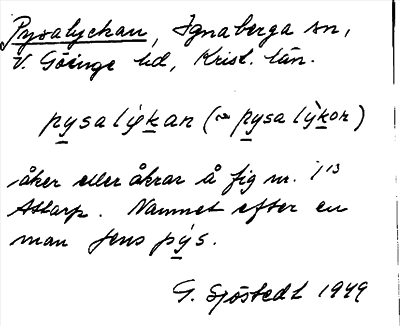 Pysalyckan, Ignaberga sn,
V. Göinge hd, Krist. län.
pysalỳkan (~ pysalỳkor)
åker eller åkrar å fig nr. 1¹³
Attarp. Namnet efter en
man Jens pýs.
G. Sjöstedt 1949